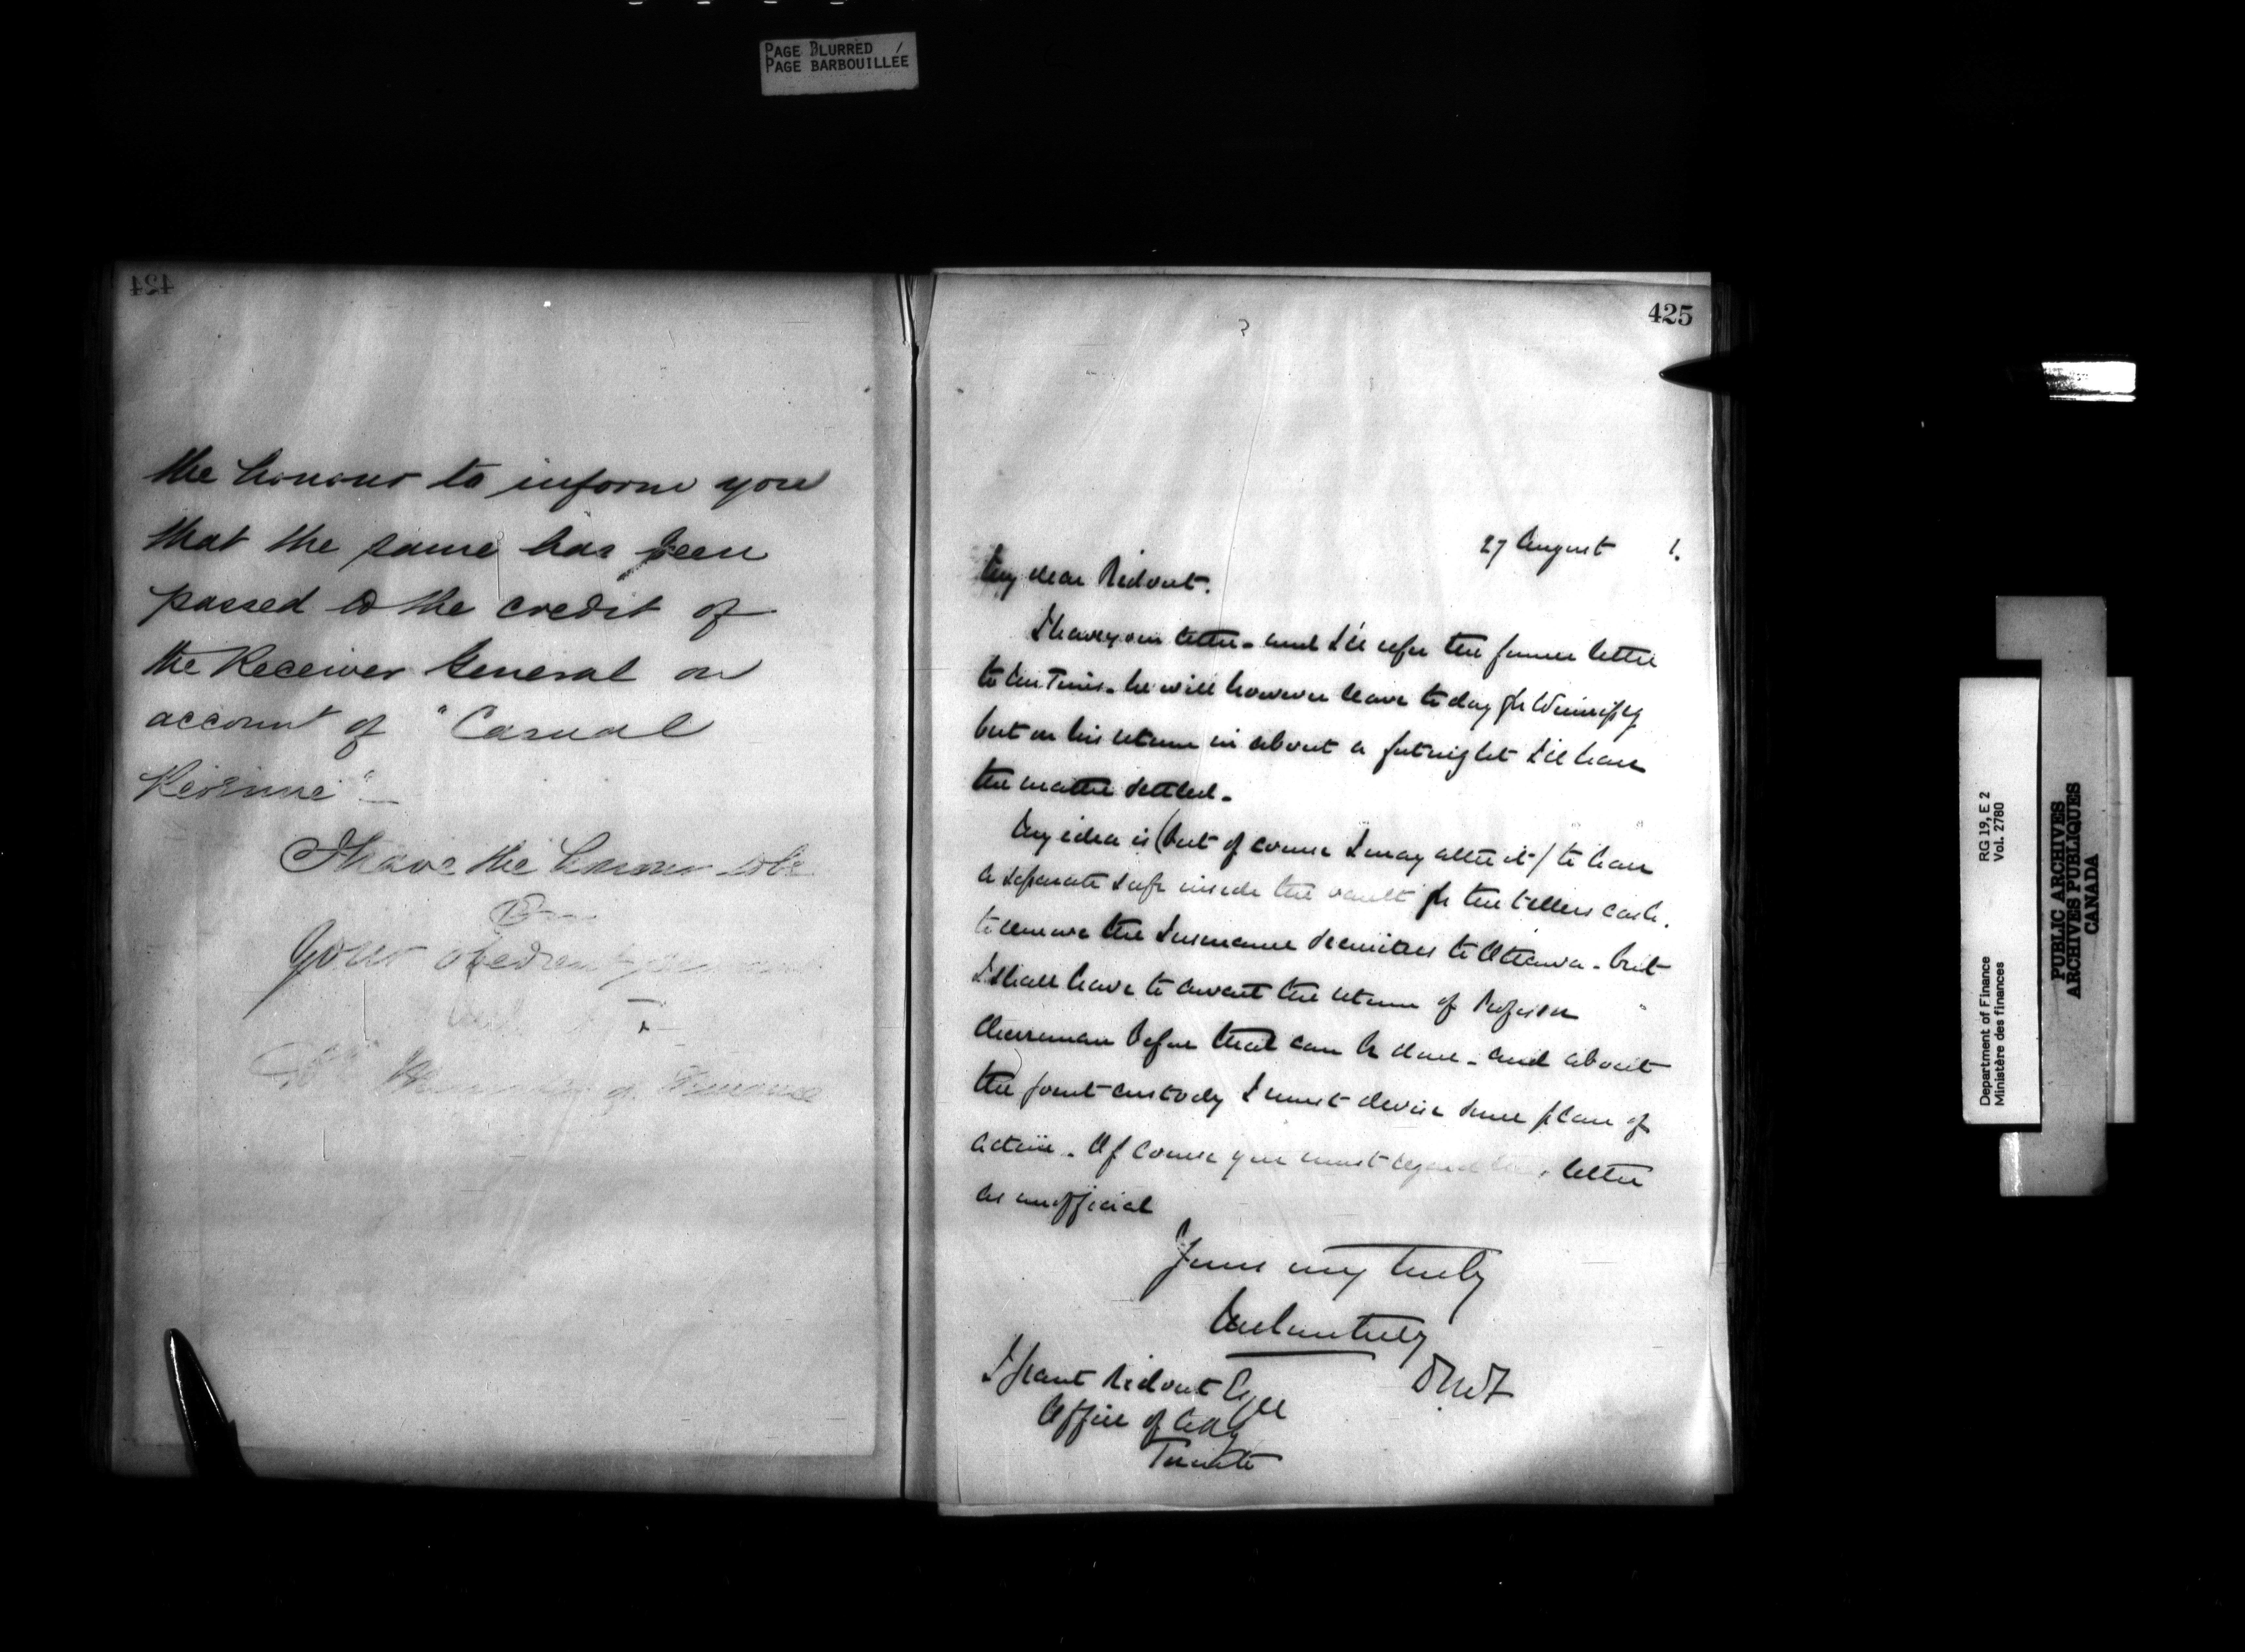 PAGE BLURRED /
PAGE BARBOUILLÉE
424
the honour to inform you
that the same has been
passed to the credit of
the Receiver General on
account of "Casual
Revenue"—
I have the honour to be
Sir
Your obedient servant
of Finance
425
27 August 1.
My dear Ridout.
I have your letter - and I'll refer the former letter
to he will however leave today for Winnipeg
but on his return in about a fortnight I'll have
the matter settled -
My idea is (but of course I may alter it) to have
a separate safe inside the vault for the tellers cash.
to remove the Insurance securities to Ottawa - but
I shall have to await the return of Professor
Cherriman before that can be done - and about
the joint custody I must devise some plan of
action - Of course you must regard this letter
as unofficial
Yours very truly
DMF
J Grant Ridout Esqre
Office of
Toronto
Department of Finance RG 19, E 2
Ministère des finances Vol. 2780
PUBLIC ARCHIVES
ARCHIVES PUBLIQUES
CANADA